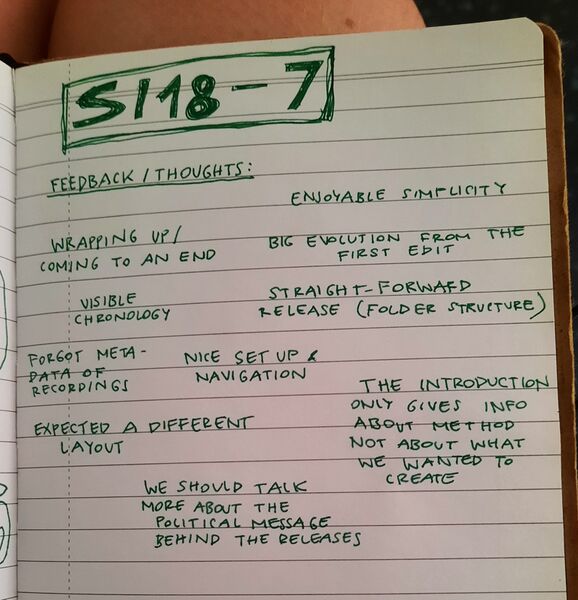 SI18-7
FEEDBACK / THOUGHTS:
ENJOYABLE SIMPLICITY
WRAPPING UP/
COMING TO AN END
BIG EVOLUTION FROM THE
FIRST EDIT
VISIBLE
CHRONOLOGY
STRAIGHT-FORWARD
RELEASE (FOLDER STRUCTURE)
FORGOT META-
DATA OF
RECORDINGS
NICE SET UP &
NAVIGATION
THE INTRODUCTION
ONLY GIVES INFO
ABOUT METHOD
NOT ABOUT WHAT
WE WANTED TO
CREATE
EXPECTED A DIFFERENT
LAYOUT
WE SHOULD TALK
MORE ABOUT THE
POLITICAL MESSAGE
BEHIND THE RELEASES